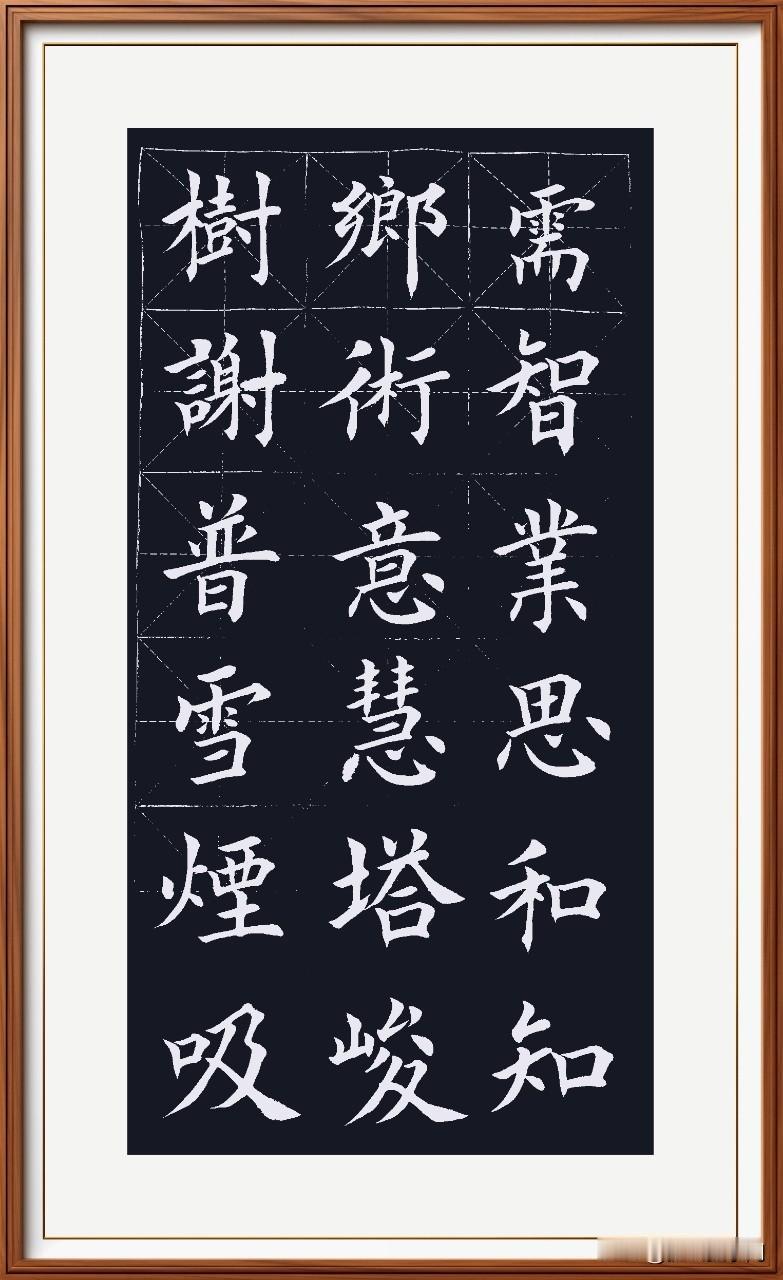 需智業思和知
鄉術意慧塔峻
樹謝普雪煙吸